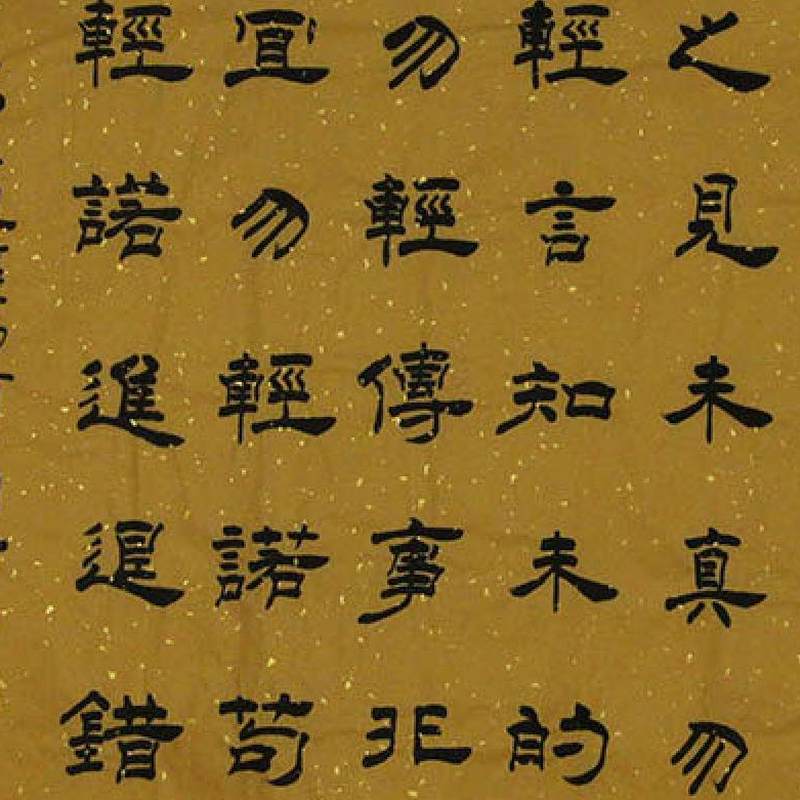 之見未真勿
輕言知未的
勿輕傳事非
宜勿輕諾苟
輕諾進退錯